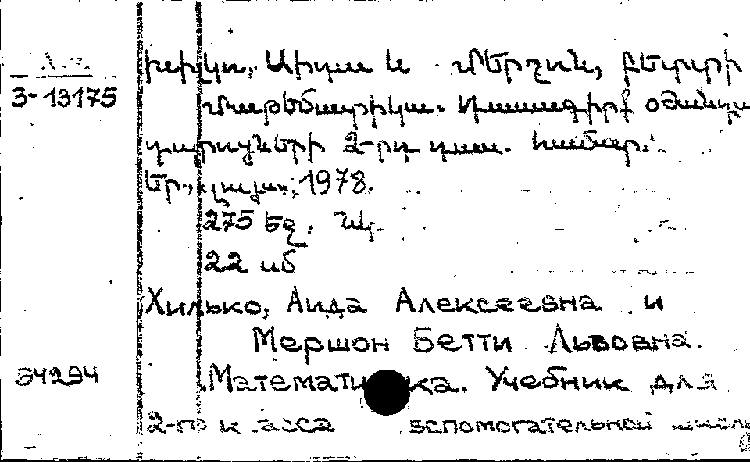 Խիլկո, Աիդա և Մերշոն, Բետտի
3-13175
Մաթեմատիկա. Դասագիրք օժանդակ
դպրոցների 2-րդ դաս. համար.
Եր., Լույս, 1978.
275 էջ. նկ.
22 սմ
Хилько, Аида Алексеевна и
Мершон Бетти Львовна.
94294
Математика. Учебник для
2-го класса вспомогательной школы